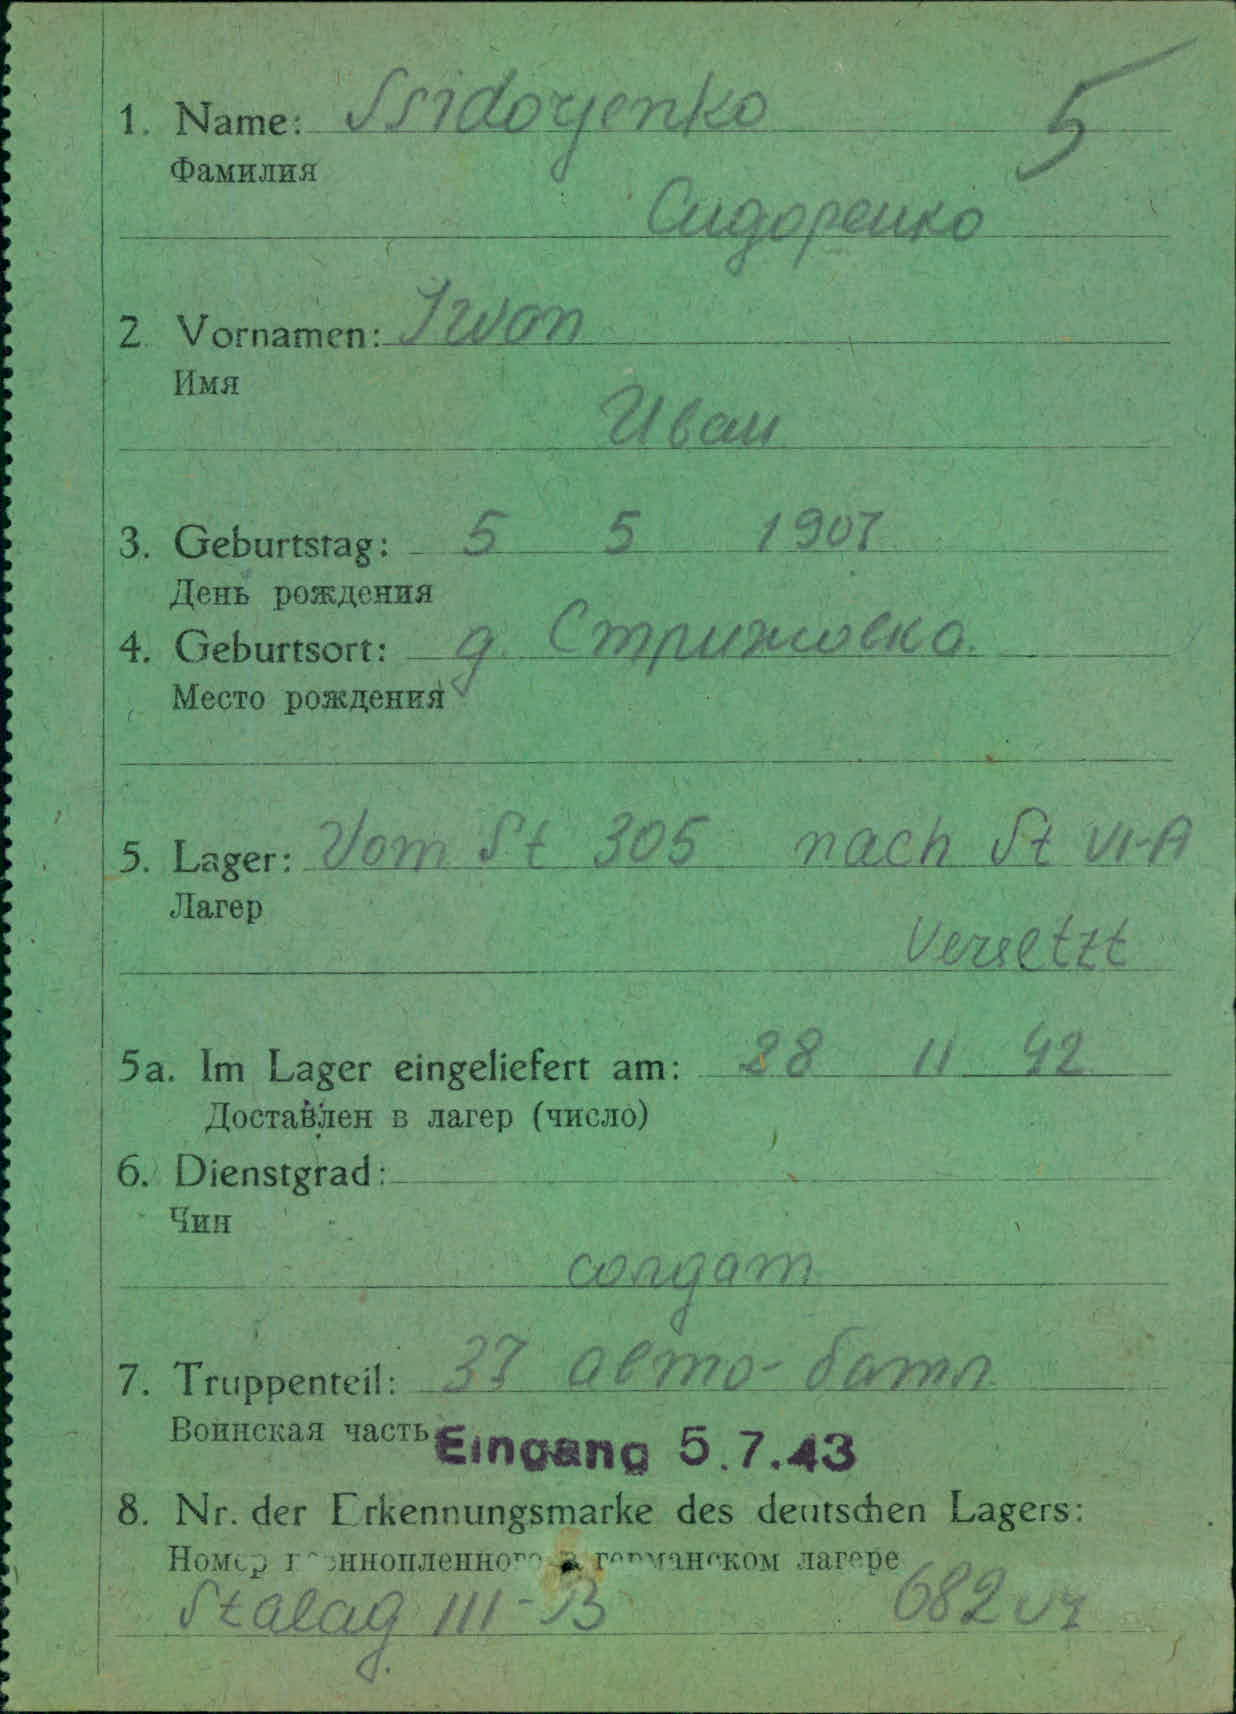 5
1. Name: Ssidorjenko
Фамилия
Сидоренко
2. Vornamen: Iwan
Имя
Иван
3. Geburtstag: 5 5 1907
День рождения
4. Geburtsort: д. Стрижовка.
Место рождения
5. Lager: Vom St 305 nach St VI-A
Лагер
Versetzt
5a. Im Lager eingeliefert am: 28 11 42
Доставлен в лагер (число)
6. Dienstgrad:
Чин
солдат
7. Truppenteil: 37 авто-батл
Воинская часть
Eingang 5.7.43
8. Nr. der Erkennungsmarke des deutschen Lagers:
Номер военнопленного в германском лагере
Stalag III-B 682